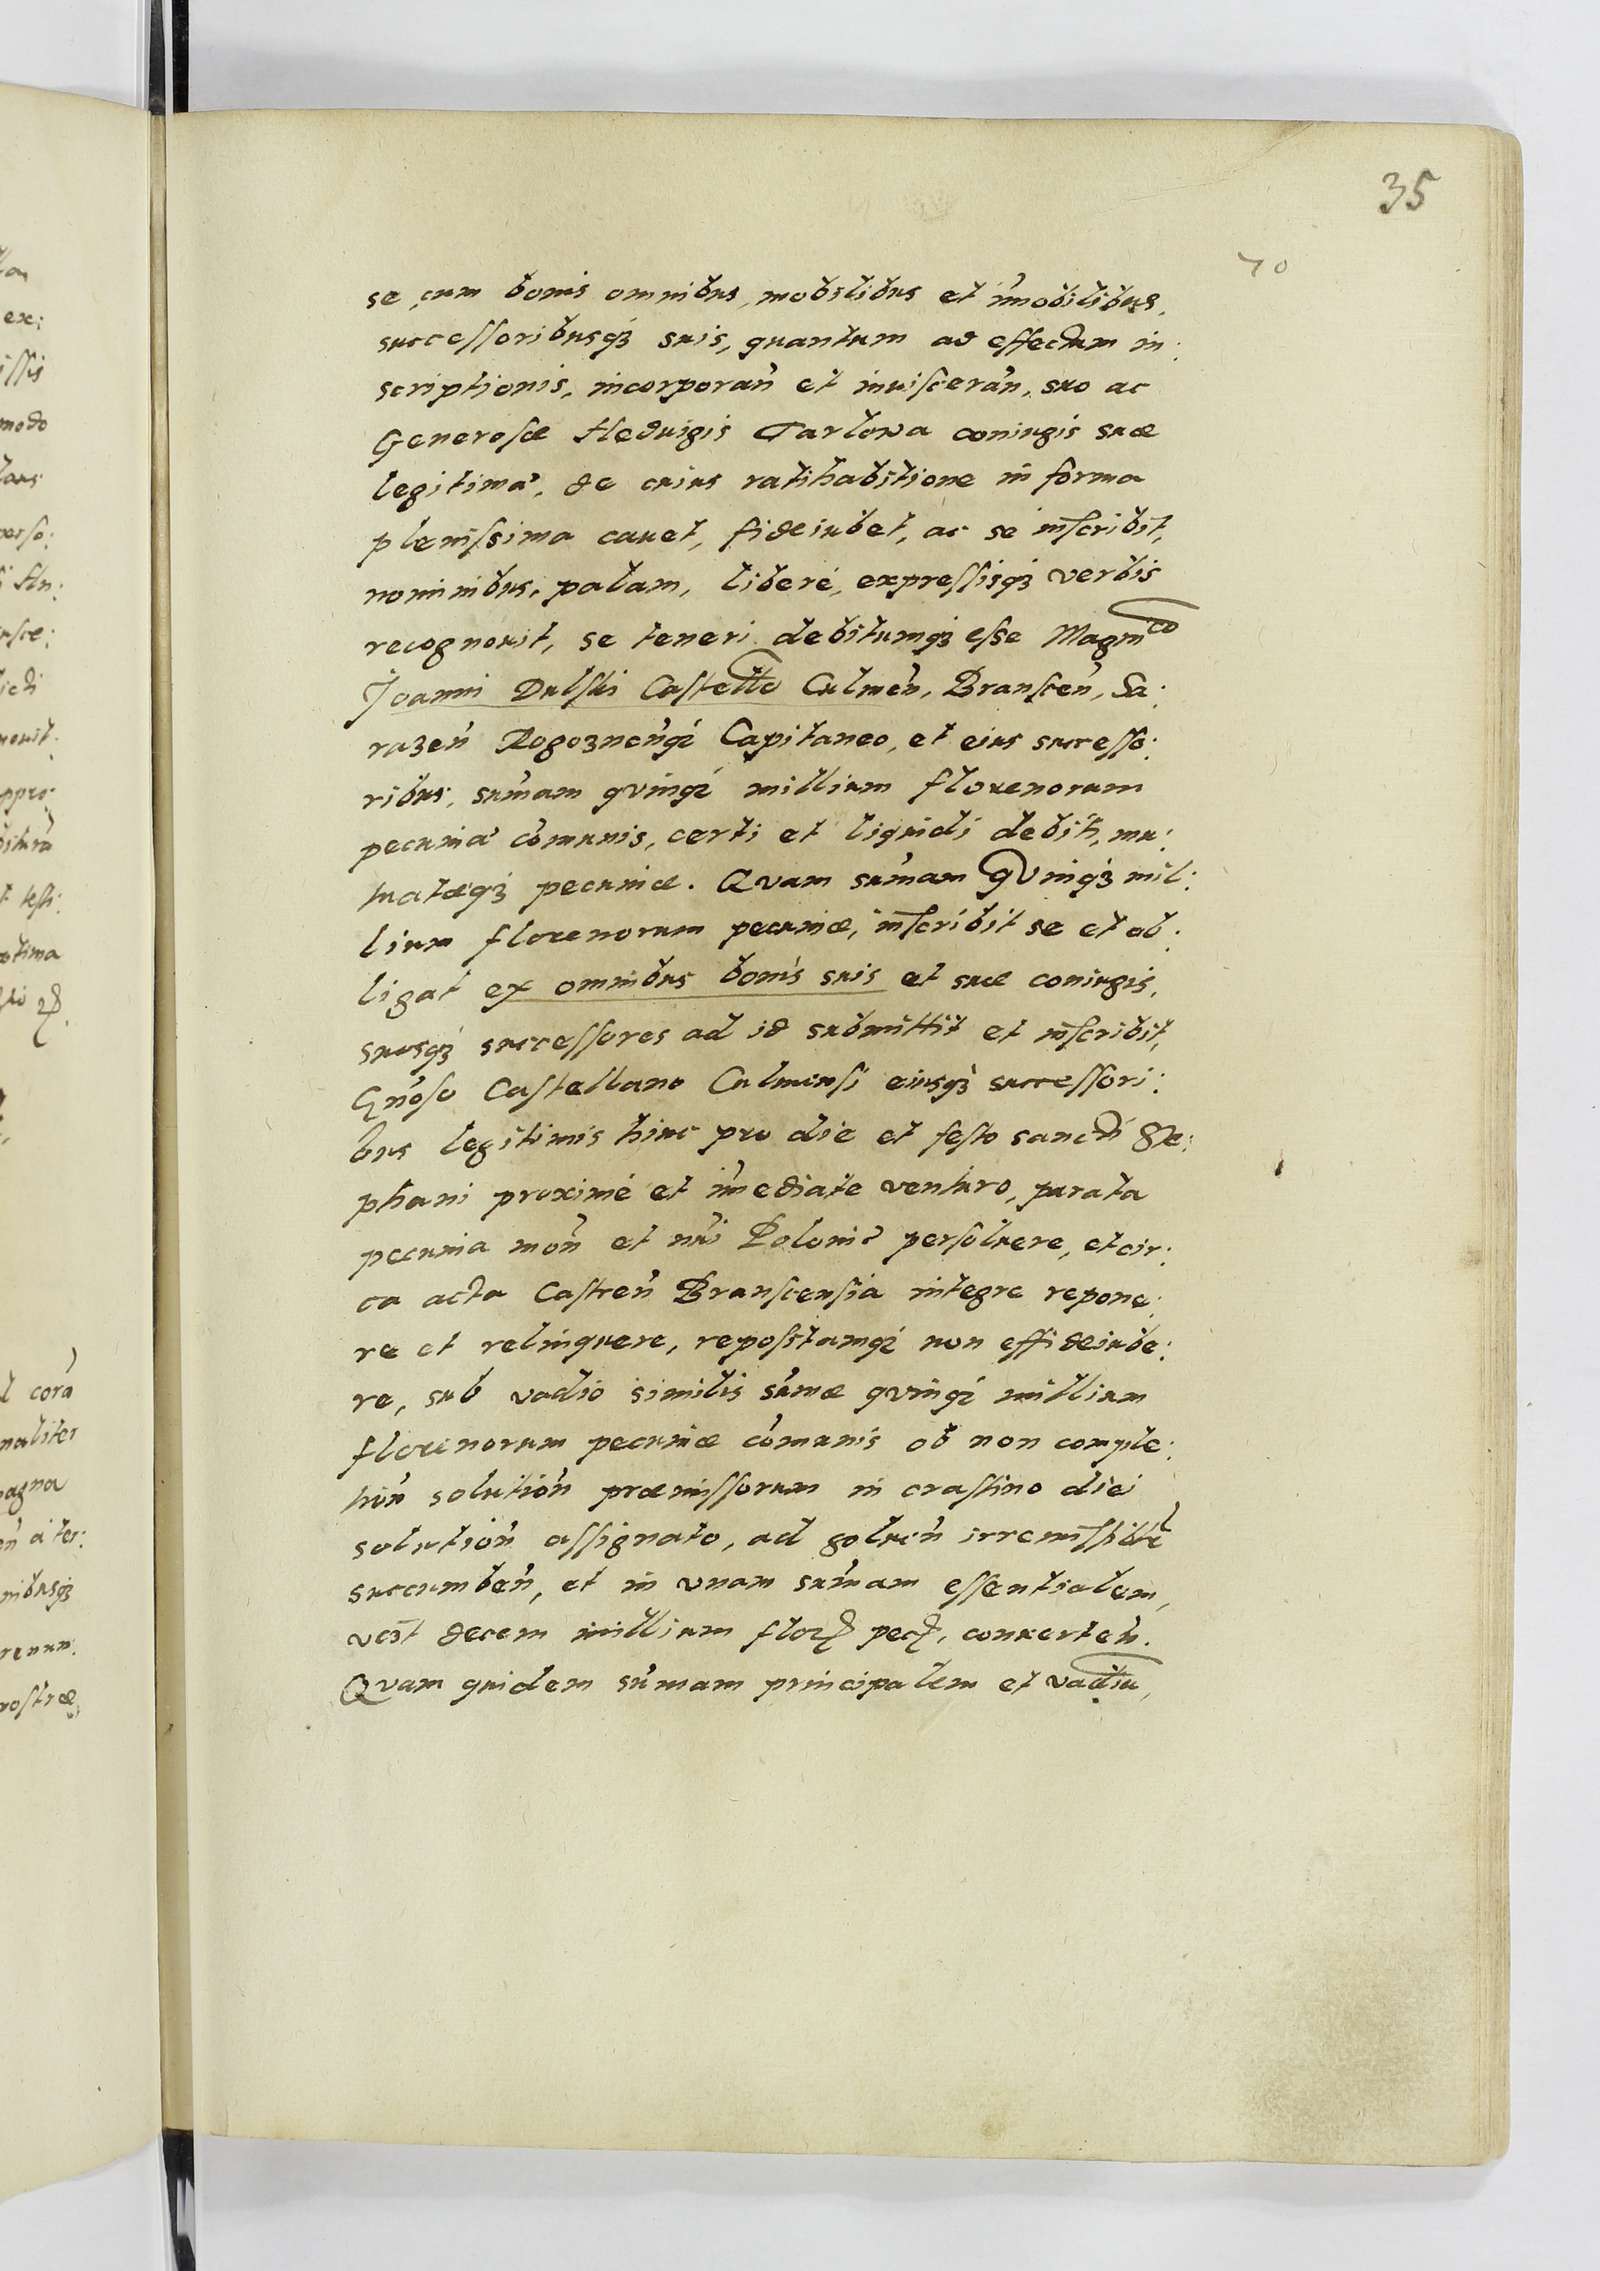 35
70
se cum bonis omnibus mobilibus et im̃obilibus,
successoribusq̃ suis, quantum ad effectum in:
scriptionis, incorporan̄ et inuisceran̄, suo ac
Generosæ Heduigis Tarlowa coniugis suæ
legitima', de cuius ratihabitione in forma
plenissima cauet, fideiubet, ac se inscribit,
nominibus, palam, liberè, expressisq̃ verbis
recognouit, se teneri debitumq̃ esse Magnᶜᵒ
Joanni Dulski Castello Culmen̄, Branscen̄, Sa:
razen̄ Rogoznen̄q̃ Capitaneo, et eius successo:
ribus, sum̃am qvinq̃ millium florenorum
pecunia' com̃unis, certi et liquidi debiti, mu:
tuatæq̃ pecuniæ. Qvam sum̃am qvinq̃ mil:
lium florenorum pecuniæ, inscribit se et ob:
ligat ex omnibus bonis suis et suæ coniugis,
suosq̃ successores ad id submittit et inscribit,
Gn̄oso Castellano Culmensi eiusq̃ successori:
bus legitimis hinc pro die et festo sancti Ste:
phani proximè et im̃ediate venturo, parata
pecunia mon̄ et nr̄i Poloni' persoluere, et cir:
ca acta Castren̄ Branscensia integre repone:
re et relinquere, repositamq̃ non effideiube:
re, sub vadio similis sum̃æ qvinq̃ millium
florenorum pecuniæ com̃unis ob non comple:
tion̄ solution̄ præmissorum in crastino diei
solution̄ assignato, ad soluen̄ irremissibilr̄
succumben̄, et in vnam sum̃am essentialem,
vcꝫt decem millium floꝝ pecꝝ, conuerten̄.
Qvam quidem sum̃am principalem et vadiu,